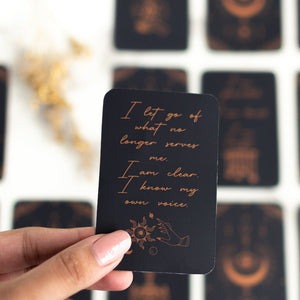 I let go of
what no
longer serves
me.
I am clear.
I know my
own voice.